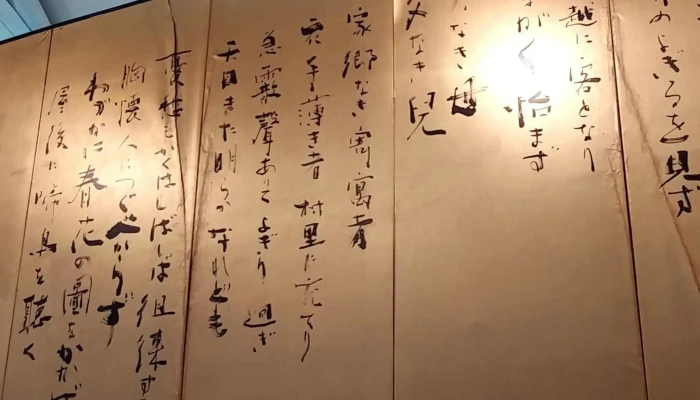 のよぎるを見ず
越に客となり
がく怡まず
なき母
なき兒
家郷なき寄寓者
衣手薄き者 村里に充てり
急霰聲ありてよぎり過ぎ
天日また明らかなれども
憂愁もかくはしばしば徂徠す
胸懐人につぐべからず
わづかに春花の圖をかかげ
屋後に啼鳥を聴く